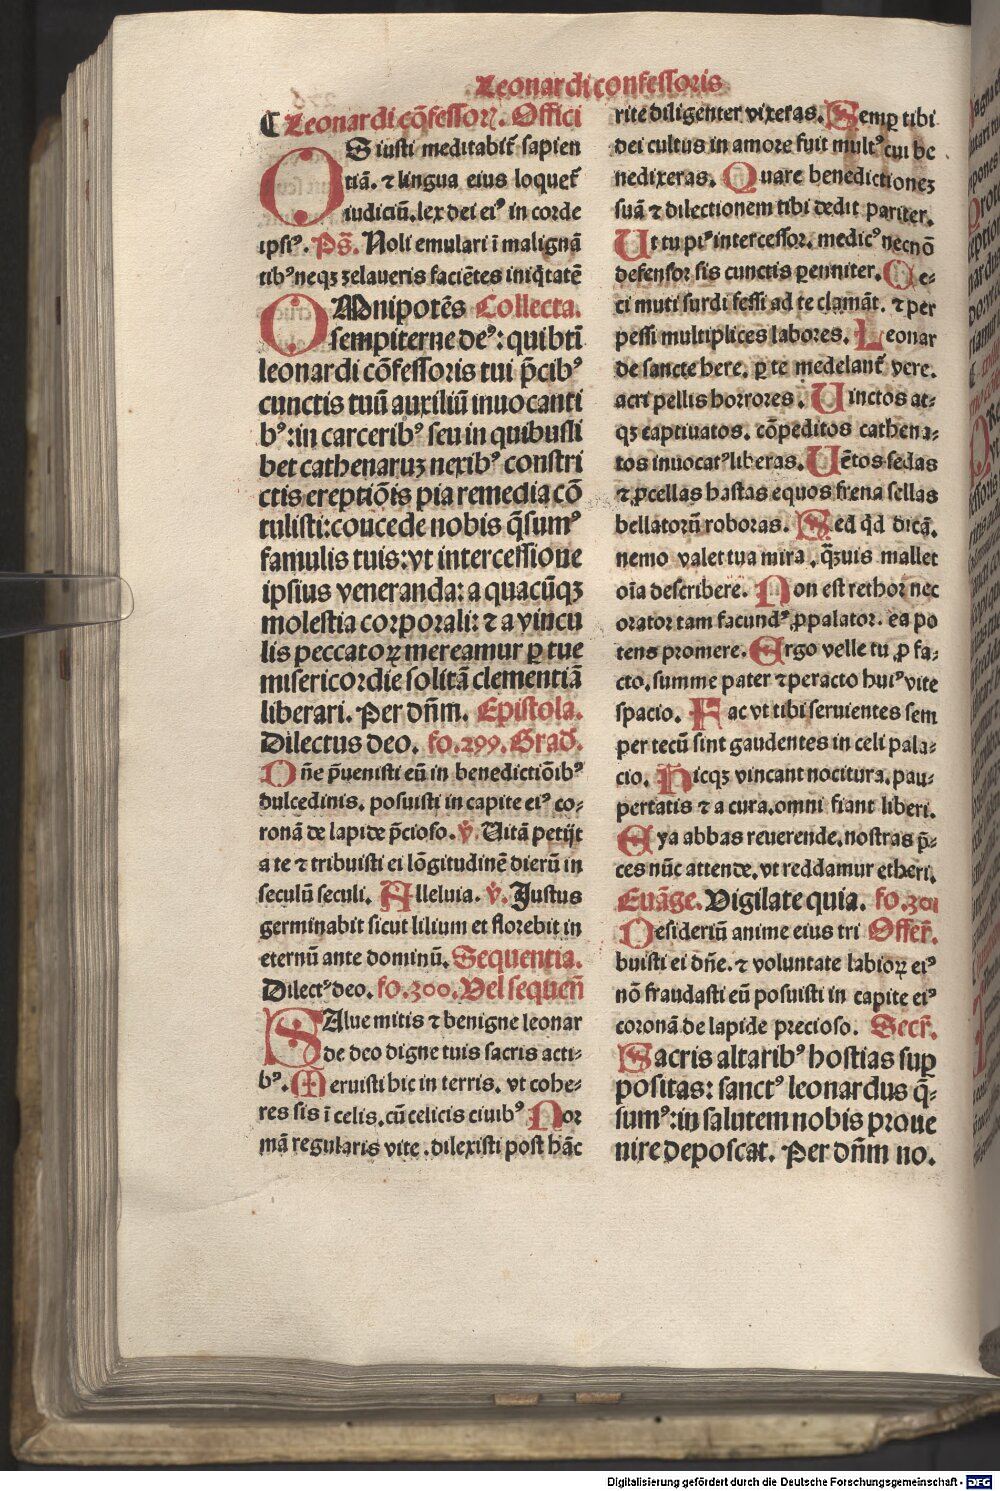 Leonardi confessoris
¶ Leonardi cõfessoꝝ. Offici
OS iusti meditabit̃ sapien
tiã. ⁊ lingua eius loquet̃
iudiciũ. lex dei eiꝰ in corde
ipsiꝰ. Ps̃. Noli emulari ĩ malignã
tibꝰ neqꝫ zelaueris faciẽtes iniq̃tatẽ
OMnipotẽs Collecta.
sempiterne deꝰ: qui bti
leonardi cõfessoris tui p̃cibꝰ
cunctis tuũ auxiliũ inuocanti
bꝰ: in carceribꝰ seu in quibusli
bet cathenaruꝫ nexibꝰ constri
ctis ereptiõis pia remedia cõ
tulisti: coucede nobis q̃sumꝰ
famulis tuis: vt intercessione
ipsius veneranda: a quacũqꝫ
molestia corporali: ⁊ a vincu
lis peccatoꝝ mereamur ꝑ tue
misericordie solitã clementiã
liberari. Per dñm. Epistola.
Dilectus deo. fo. 299. Grad̃.
Dñe p̃uenisti eũ in benedictiõibꝰ
dulcedinis. posuisti in capite eiꝰ co⸗
ronã de lapide p̃cioso. v̓. Uitã petijt
a te ⁊ tribuisti ei lõgitudinẽ dierũ in
seculũ seculi. Alleluia. v̓. Justus
germinabit sicut lilium et florebit in
eternũ ante dominũ. Sequentia.
Dilectꝰ deo. fo. 300. Vel sequeñ
SAlue mitis ⁊ benigne leonar
de deo digne tuis sacris acti⸗
bꝰ. Meruisti hic in terris. vt cohe⸗
res sis ĩ celis. cũ celicis ciuibꝰ Nor
mã regularis vite. dilexisti post hãc
rite diligenter vixeras. Semꝑ tibi
dei cultus in amore fuit multꝰ cui be
nedixeras. Quare benedictioneꝫ
suã ⁊ dilectionem tibi dedit pariter.
Ut tu piꝰ intercessor. medicꝰ necnõ
defensor sis cunctis ꝑenniter. Ce⸗
ci muti surdi fessi ad te clamãt. ⁊ per
pessi multiplices labores. Leonar
de sancte here. ꝑ te medelant̃ vere.
acri pellis horrores. Uinctos at⸗
qꝫ captiuatos. cõpeditos cathena⸗
tos inuocatꝰ liberas. Uẽtos sedas
⁊ ꝓcellas hastas equos frena sellas
bellatorũ roboras. Sed qd̃ dicã.
nemo valet tua mira. q̃ꝫuis mallet
oĩa describere. Non est rethor nec
orator tam facundꝰ ꝓpalator. ea po
tens promere. Ergo velle tu ꝓ fa⸗
cto. summe pater ⁊ peracto huiꝰ vite
spacio. Fac vt tibi seruientes sem
per tecũ sint gaudentes in celi pala⸗
cio. Hicqꝫ vincant nocitura. pau⸗
pertatis ⁊ a cura. omni fiant liberi.
Eya abbas reuerende. nostras p̃⸗
ces nũc attende. vt reddamur etheri.
Euãge. Vigilate quia. fo. 301
Desideriũ anime eius tri Offer̃.
buisti ei dñe. ⁊ voluntate labioꝝ eiꝰ
nõ fraudasti eũ posuisti in capite eiꝰ
coronã de lapide precioso. Secr̃.
Sacris altaribꝰ hostias suꝑ
positas: sanctꝰ leonardus q̃⸗
sumꝰ: in salutem nobis proue
nire deposcat. Per dñm no.
Digitalisierung gefördert durch die Deutsche Forschungsgemeinschaft - DFG